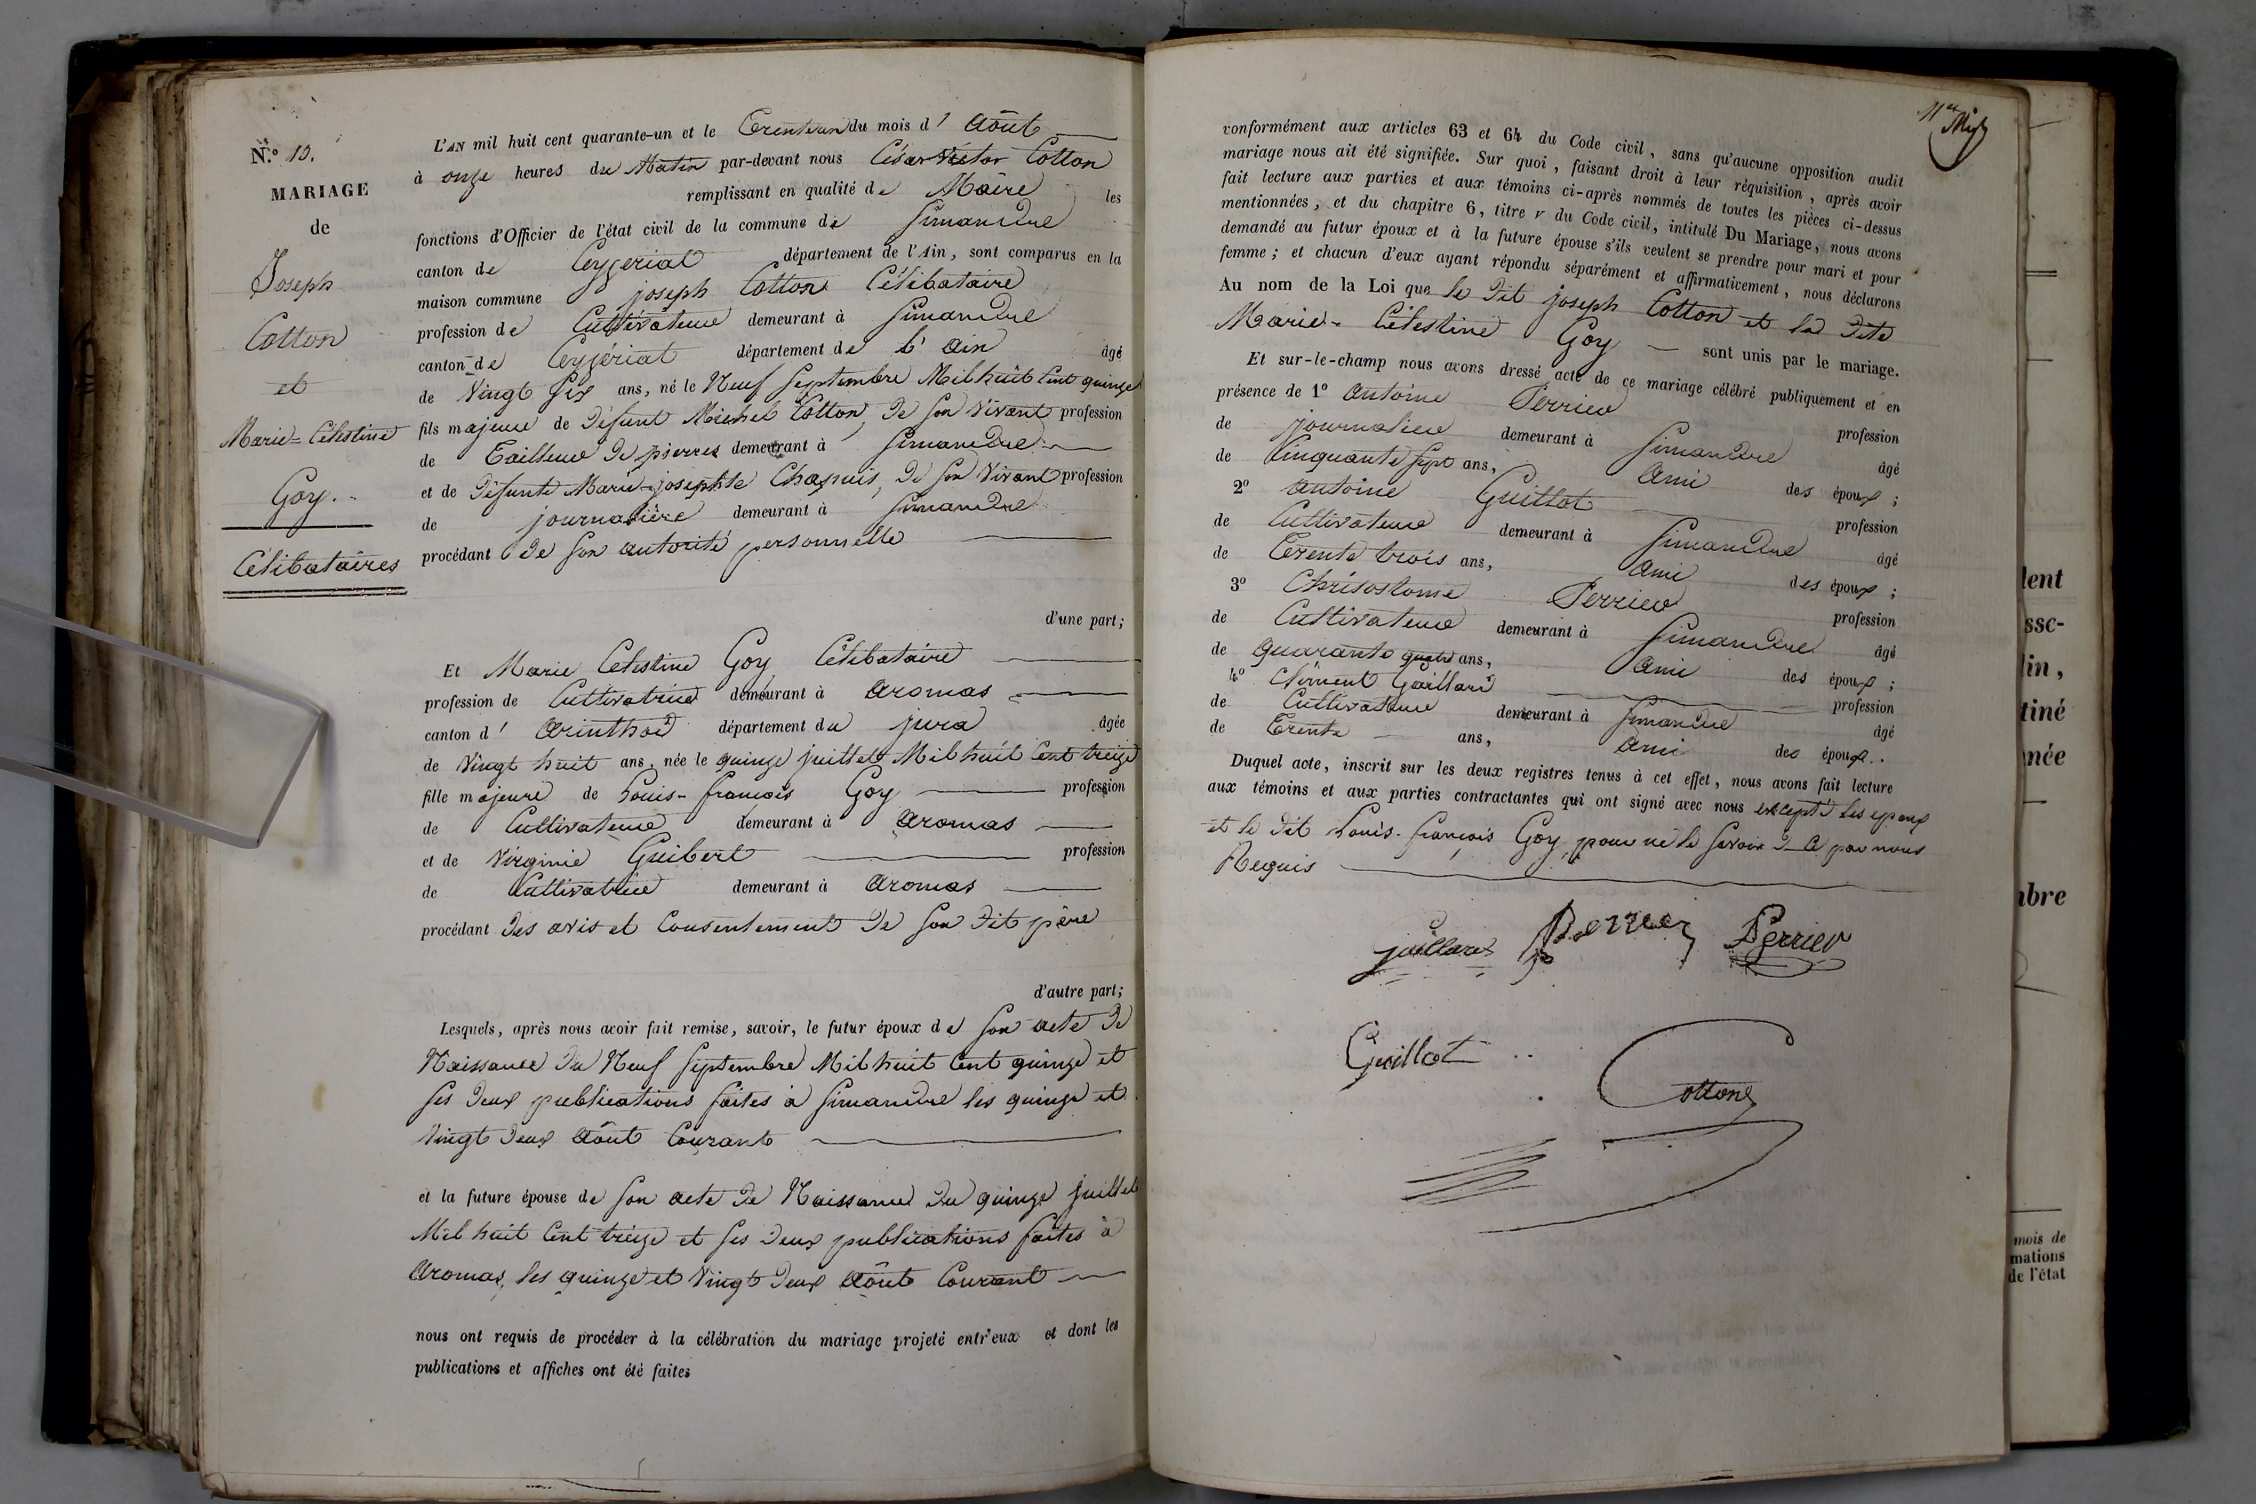 N.o 10.
MARIAGE
de
Joseph
Cotton
et
Marie-Célestine
Goy.
Célibataires
L'AN mil huit cent quarante-un et le Trenteun du mois d' Août
à onze heures du Matin par-devant nous César Victor Cotton
remplissant en qualité de Maire les
fonctions d'Officier de l'état civil de la commune de Simandre
canton de Ceyzeriat département de l'Ain, sont comparus en la
maison commune joseph Cotton Célibataire
profession de Cultivateur demeurant à Simandre
canton de Ceyzériat département de L'ain âgé
de Vingt Six ans, né le Neuf Septembre Mil huit Cent quinze
fils majeur de Défunt Michel Cotton, De Son Vivant profession
de Tailleur De pierres demeurant à Simandre
et de Défunte Marie-josephte Chapuis, De Son Vivant profession
de journalière demeurant à Simandre
procédant De Son autorité personnelle
d'une part;
Et Marie Célestine Goy Célibataire
profession de Cultivatrice demeurant à Aromas
canton d' Arinthod département du jura âgée
de Vingt huit ans, née le quinze juillet Mil huit Cent treize
fille majeure de Louis-françois Goy profession
de Cultivateur demeurant à Aromas
et de Virginie Guibert profession
de Cultivatrice demeurant à Aromas
procédant Des avis et Consentement De Son Dit père
d'autre part;
Lesquels, après nous avoir fait remise, savoir, le futur époux de Son acte De
Naissance Du Neuf Septembre Mil huit Cent quinze et
Ses Deux publications faites à Simandre les quinze et
Vingt Deux Août Courant
et la future épouse de Son acte De Naissance Du quinze juillet
Mil huit Cent treize et Ses Deux publications faites à
Aromas, les quinze et Vingt Deux Août Courant
nous ont requis de procéder à la célébration du mariage projeté entr'eux et dont les
publications et affiches ont été faites
conformément aux articles 63 et 64 du Code civil, sans qu'aucune opposition audit
mariage nous ait été signifiée. Sur quoi, faisant droit à leur réquisition, après avoir
fait lecture aux parties et aux témoins ci-après nommés de toutes les pièces ci-dessus
mentionnées, et du chapitre 6, titre v du Code civil, intitulé Du Mariage, nous avons
demandé au futur époux et à la future épouse s'ils veulent se prendre pour mari et pour
femme; et chacun d'eux ayant répondu séparément et affirmativement, nous déclarons
Au nom de la Loi que le Dit joseph Cotton et la Dite
Marie-Célestine Goy sont unis par le mariage.
Et sur-le-champ nous avons dressé acte de ce mariage célébré publiquement et en
présence de 1o Antoine Perrier profession
de journalier demeurant à Simandre âgé
de Cinquante Sept ans, Ami des époux;
2o Antoine Guillot profession
de Cultivateur demeurant à Simandre âgé
de Trente trois ans, Ami des époux;
3o Chrisostome Perrier profession
de Cultivateur demeurant à Simandre âgé
de quarante quatre ans, Ami des époux;
4o Clément Gaillard profession
de Cultivateur demeurant à Simandre âgé
de Trente ans, Ami des époux.
Duquel acte, inscrit sur les deux registres tenus à cet effet, nous avons fait lecture
aux témoins et aux parties contractantes qui ont signé avec nous excepté les epoux
et le Dit Louis-françois Goy, pour ne le Savoir De Ce par nous
Requis
gaillard Perrier Perrier
Guillot
Cotton
lent
sse-
lin,
tiné
née
nbre
mois de
mations
de l'état